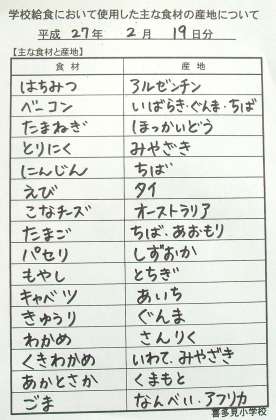 学校給食において使用した主な食材の産地について
平成 27年 2月 19日分
【主な食材と産地】
食材 産地
はちみつ アルゼンチン
ベーコン いばらき・ぐんま・ちば
たまねぎ ほっかいどう
とりにく みやざき
にんじん ちば
えび タイ
こなチーズ オーストラリア
たまご ちば、あおもり
パセリ しずおか
もやし とちぎ
キャベツ あいち
きゅうり ぐんま
わかめ さんりく
くきわかめ いわて、みやざき
あかとさか くまもと
ごま なんべい・アフリカ
喜多見小学校